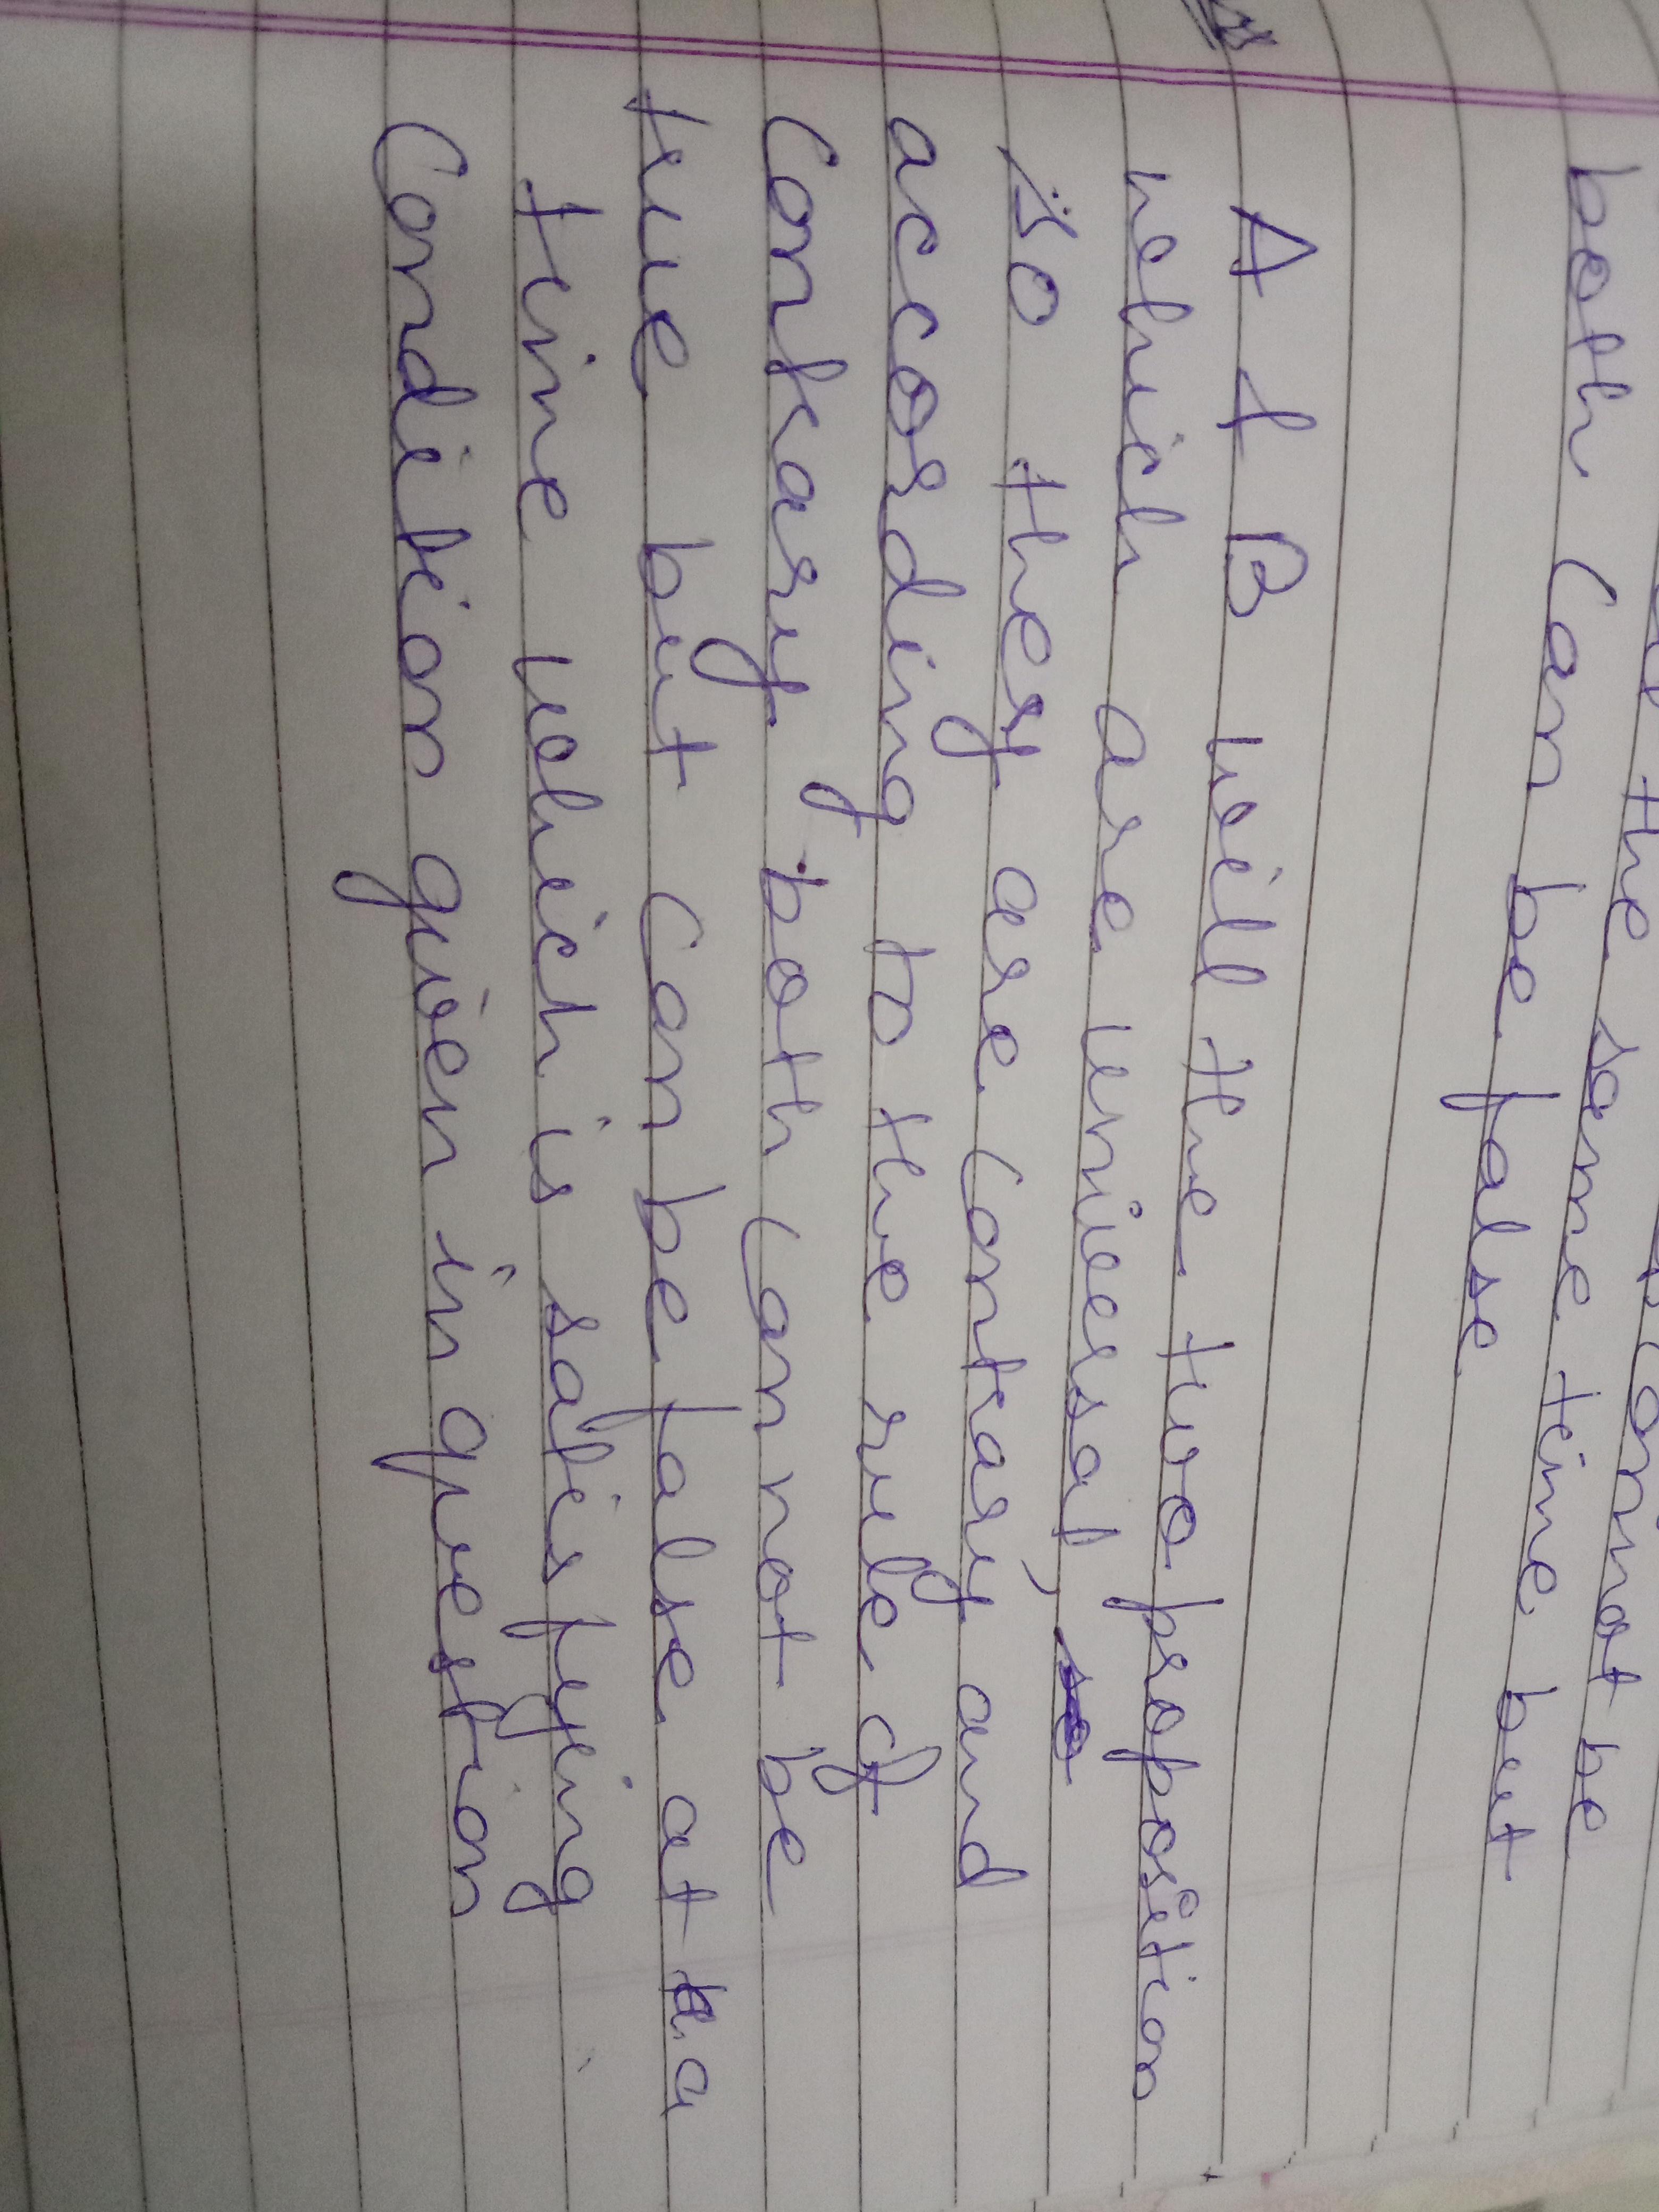 the same time cannot be
both can be false time but
A & B will the two proposition
which are universal,
so they are contrary and
according to the rule of
contrary both can not be
true but can be false at a
time which is satisfying
Condition given in question